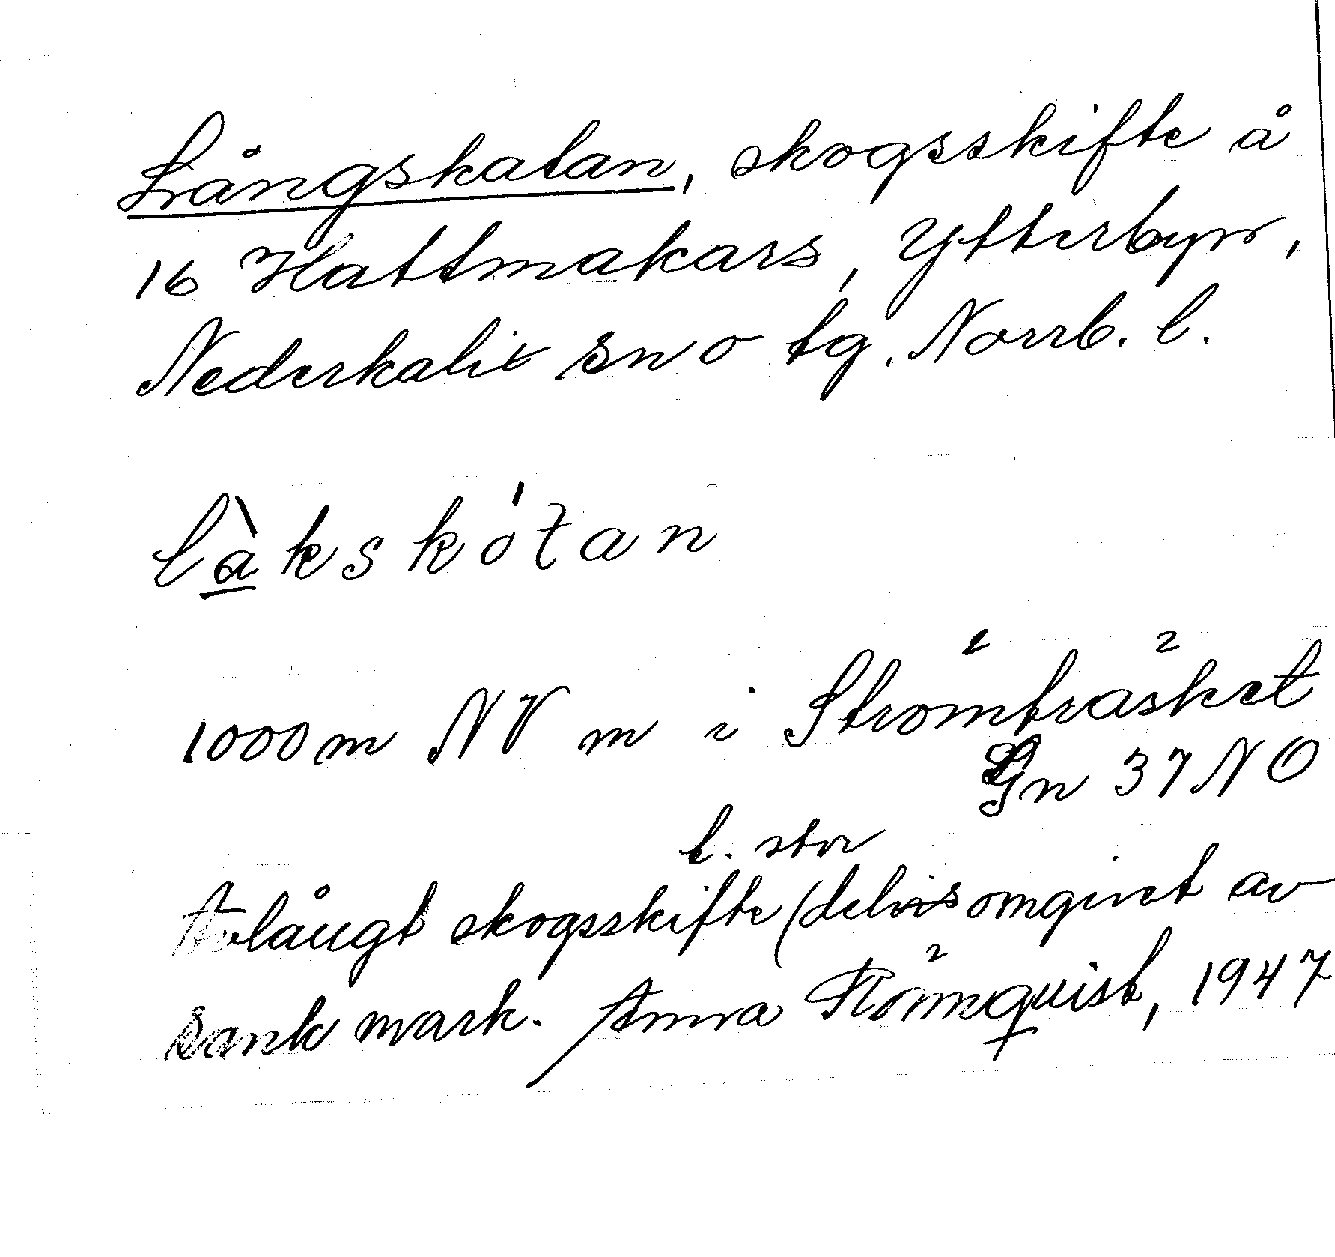 Långskatan, skogsskifte å
16 Hattmakars, Ytterbyn,
Nederkalix sn o tg. Norrb. l.
làkskótan
1000 m NV m i Strömträsket
Gn 37 NO
t. stor
Avlångt skogsskifte (delvis omgivet av
sank mark. Anna Römquist, 1947